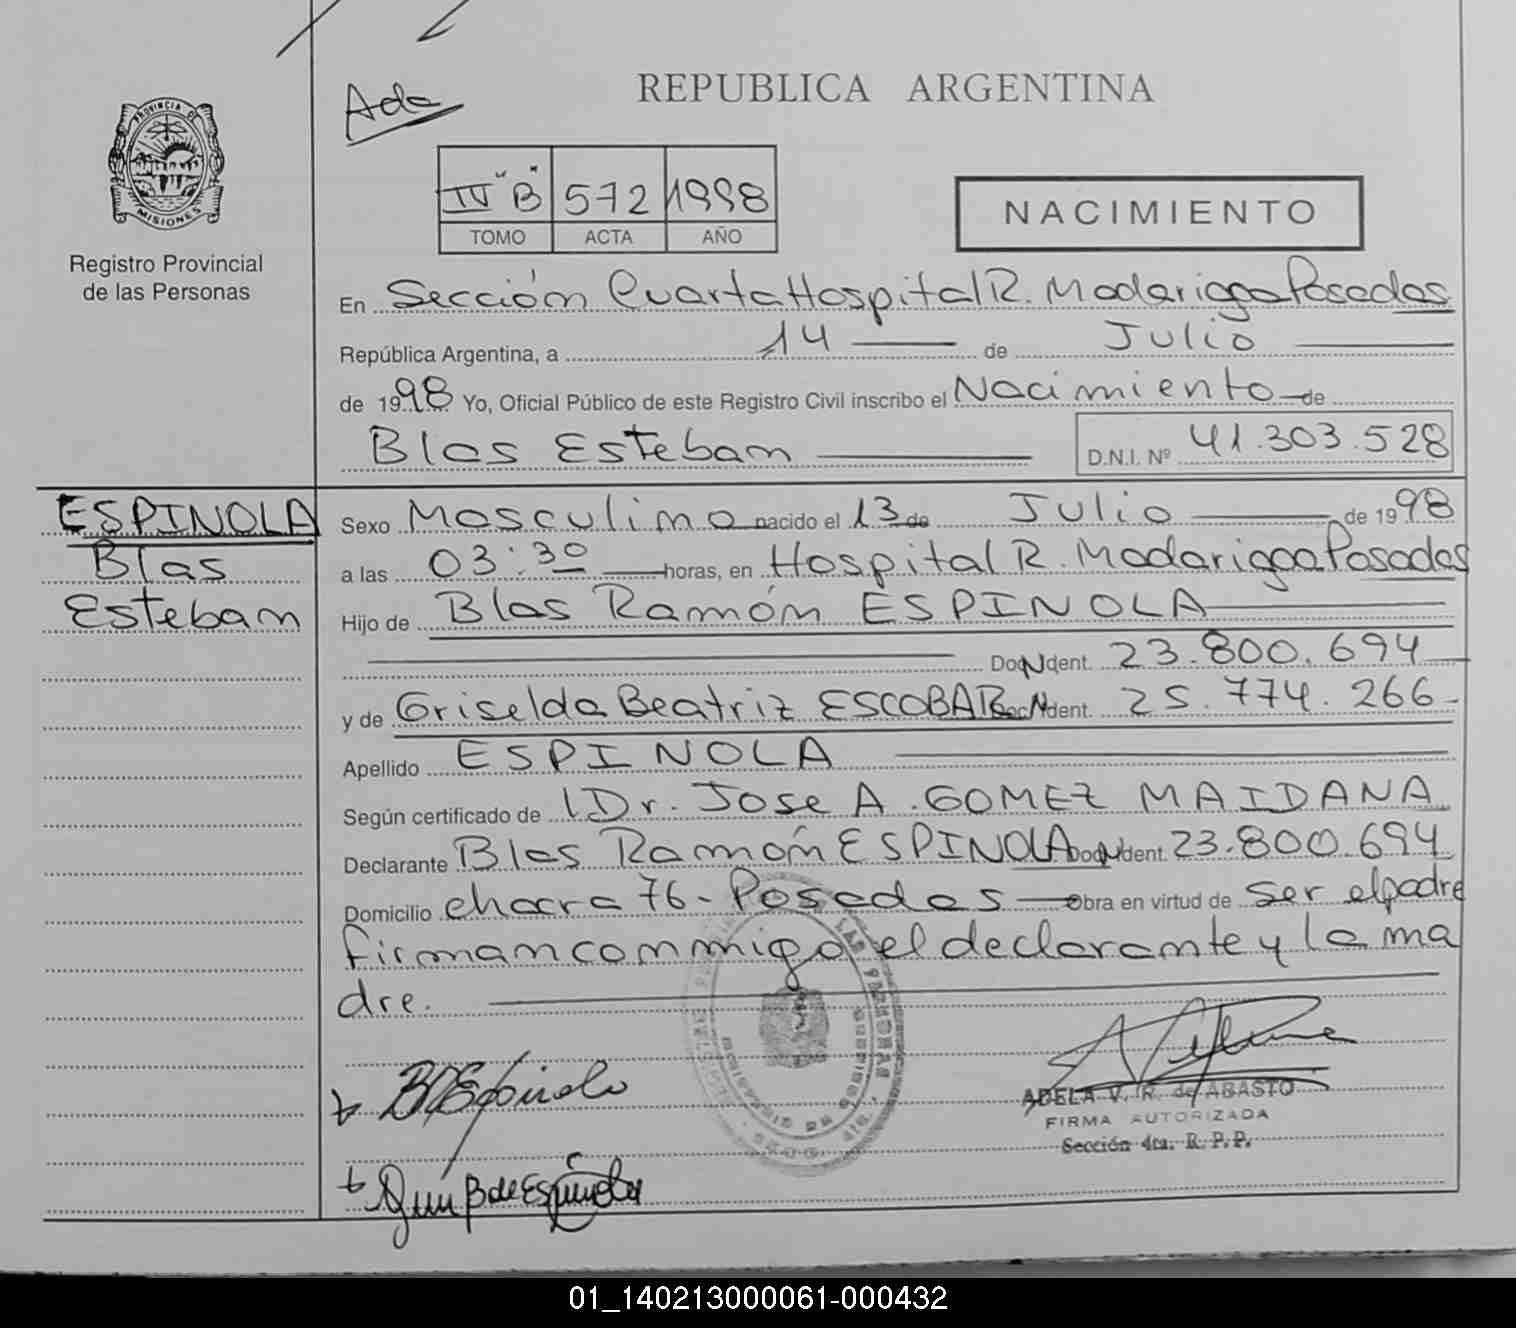 Ada
REPUBLICA ARGENTINA
PROVINCIA DE
MISIONES
Registro Provincial
de las Personas
IV "B" 572 1998
TOMO ACTA AÑO
NACIMIENTO
En Sección Cuarta Hospital R. Madariaga Posadas
República Argentina, a 14 de Julio
de 1998 Yo, Oficial Público de este Registro Civil inscribo el Nacimiento de
Blas Esteban D.N.I. Nº 41.303.528
ESPINOLA
Blas
Esteban
Sexo Masculino nacido el 13 de Julio de 1998
a las 03:30 horas, en Hospital R. Madariaga Posadas
Hijo de Blas Ramón ESPINOLA
Doc. Ident. 23.800.694
y de Griselda Beatriz ESCOBAR Doc. Ident. 25.774.266
Apellido ESPINOLA
Según certificado de Dr. Jose A. GOMEZ MAIDANA
Declarante Blas Ramón ESPINOLA Doc. Ident. 23.800.694
Domicilio chacra 76 - Posadas Obra en virtud de ser el padre
firman conmigo el declarante y la ma
dre.
ADELA V. R. de ABASTO
FIRMA AUTORIZADA
Sección 4ta. R. P. P.
01_140213000061-000432